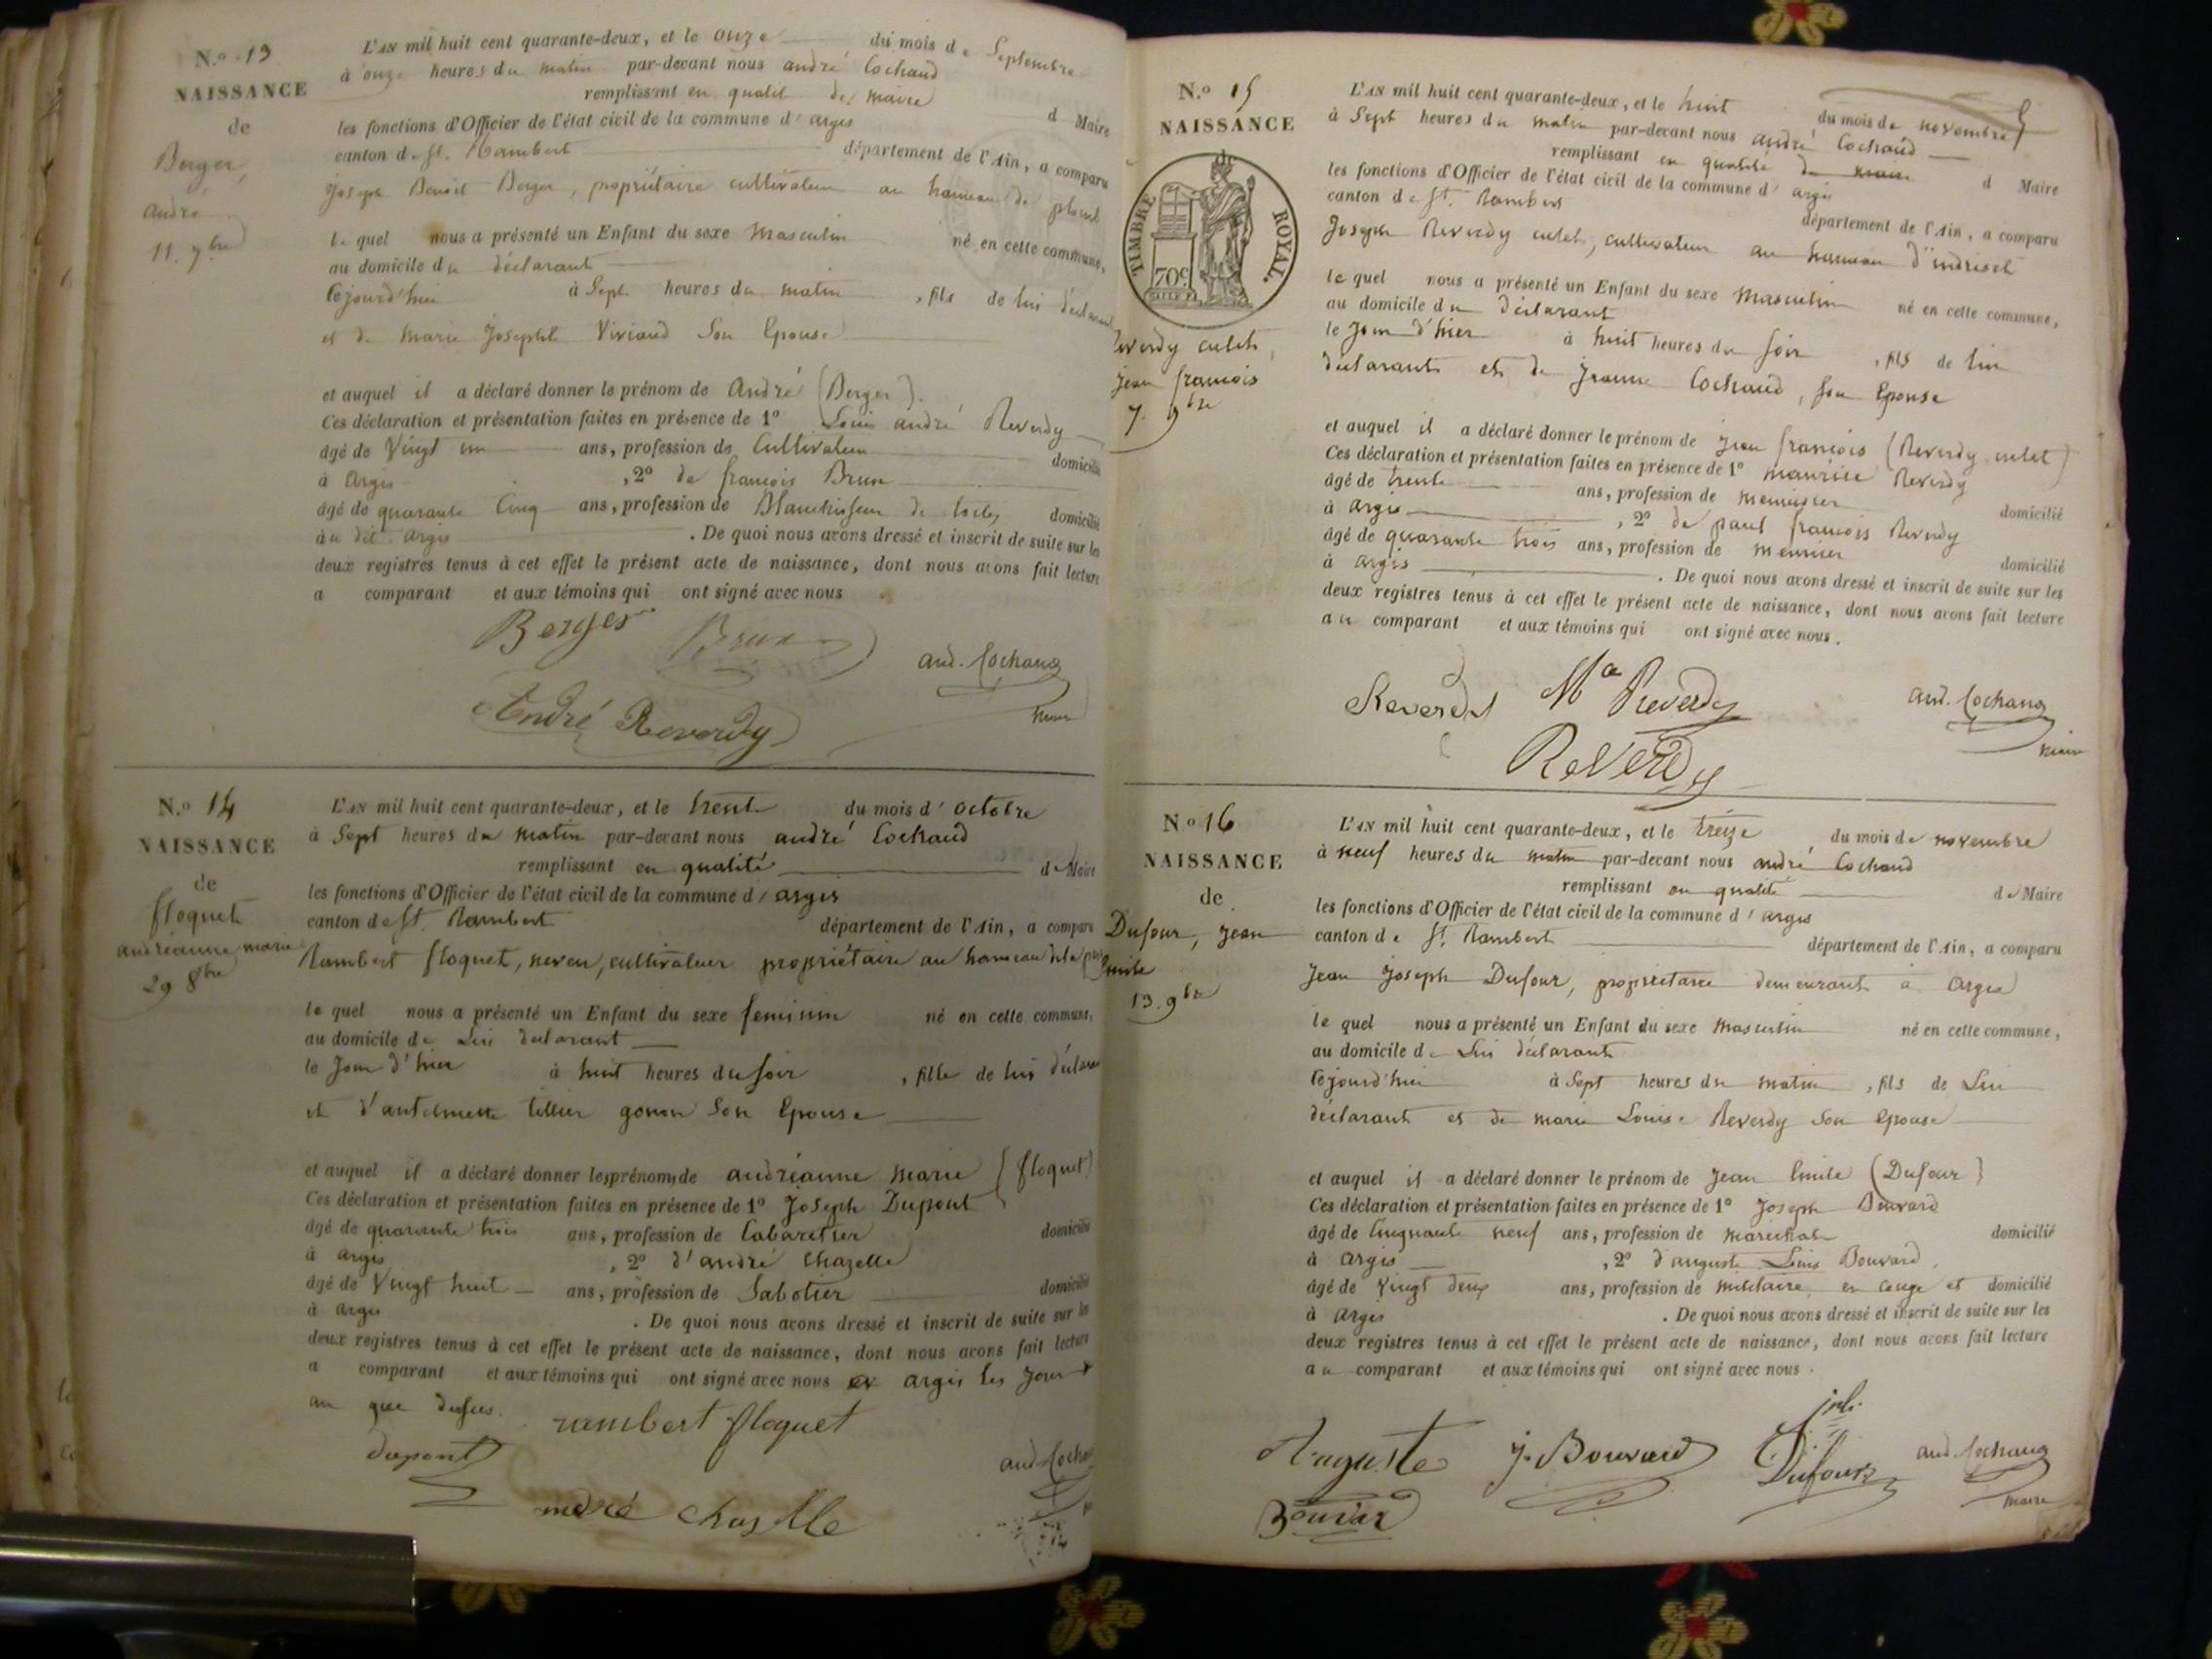 N.º 13
NAISSANCE
de
Berger,
andré
11. 7bre
L'AN mil huit cent quarante-deux, et le onze du mois de Septembre
à onze heures du matin par-devant nous andré Cochaud
remplissant en qualit de maire d Maire
les fonctions d'Officier de l'état civil de la commune d' argis
canton de St. Rambert département de l'Ain, a comparu
Joseph Benoit Berger, propriétaire cultivateur au hameau de
le quel nous a présenté un Enfant du sexe Masculin né en cette commune,
au domicile du déclarant
Cejourd'hui à Sept heures du matin, fils de lui déclarant
et de marie Josephte Viviand Son Epouse
et auquel il a déclaré donner le prénom de André (Berger).
Ces déclaration et présentation faites en présence de 1º Louis andré Reverdy
âgé de Vingt un ans, profession de Cultivateur domicilié
à Argis, 2º de françois Brun
âgé de quarante Cinq ans, profession de Blanchisseur de toiles domicilié
au dit argis. De quoi nous avons dressé et inscrit de suite sur les
deux registres tenus à cet effet le présent acte de naissance, dont nous avons fait lecture
a comparant et aux témoins qui ont signé avec nous
Berger Brun
and. Cochaud
André Reverdy
maire
N.º 14
NAISSANCE
de
floquet
andréanne marie
29 8bre
L'AN mil huit cent quarante-deux, et le trente du mois d' octobre
à Sept heures du matin par-devant nous andré Cochaud
remplissant en qualité de Maire
les fonctions d'Officier de l'état civil de la commune d' argis
canton de St. Rambert département de l'Ain, a comparu
Rambert floquet, neveu, cultivateur propriétaire au hameau de la
le quel nous a présenté un Enfant du sexe feminin né en cette commune,
au domicile de Lui déclarant
le Jour d'hier à huit heures du soir, fille de lui déclarant
et d'antelmette tellier gonon Son Epouse
et auquel il a déclaré donner les prénoms de andréanne marie (floquet)
Ces déclaration et présentation faites en présence de 1º Joseph Dupont
âgé de quarante trois ans, profession de Cabaretier domicilié
à argis, 2º d'andré Chazelle
âgé de Vingt huit ans, profession de Sabotier domicilié
à argis. De quoi nous avons dressé et inscrit de suite sur les
deux registres tenus à cet effet le présent acte de naissance, dont nous avons fait lecture
a comparant et aux témoins qui ont signé avec nous argis les jour
an que dessus.
rambert floquet
dupont
and. Cocha
andré chazelle
N.º 15
NAISSANCE
de
TIMBRE ROYAL.
70 c.
Reverdy culet,
jean françois
7. 9bre
L'AN mil huit cent quarante-deux, et le huit du mois de novembre
à Sept heures du matin par-devant nous andré Cochaud
remplissant en qualité de maire d Maire
les fonctions d'Officier de l'état civil de la commune d' argis
canton de St. Rambert département de l'Ain, a comparu
Joseph Reverdy culet, cultivateur au hameau d'indrieset
le quel nous a présenté un Enfant du sexe Masculin né en cette commune,
au domicile du déclarant
le Jour d'hier à huit heures du soir, fils de lui
déclarant et de jeanne Cochaud, son Epouse
et auquel il a déclaré donner le prénom de jean françois (Reverdy culet)
Ces déclaration et présentation faites en présence de 1º maurice Reverdy
âgé de trente ans, profession de menuisier domicilié
à argis, 2º de paul françois Reverdy
âgé de quarante trois ans, profession de domicilié
à argis. De quoi nous avons dressé et inscrit de suite sur les
deux registres tenus à cet effet le présent acte de naissance, dont nous avons fait lecture
au comparant et aux témoins qui ont signé avec nous.
Reverdy Mce Reverdy
and. Cochaud
Reverdy
maire
Nº 16
NAISSANCE
de
Dufour, jean
Emile
13. 9bre
L'AN mil huit cent quarante-deux, et le treize du mois de novembre
à neuf heures du matin par-devant nous andré Cochaud
remplissant en qualité de Maire
les fonctions d'Officier de l'état civil de la commune d' argis
canton de St. Rambert département de l'Ain, a comparu
Jean Joseph Dufour, propriétaire demeurant à Argis
le quel nous a présenté un Enfant du sexe masculin né en cette commune,
au domicile de Lui déclarant
Cejourd'hui à Sept heures du matin, fils de Lui
déclarant et de marie Louise Reverdy Son Epouse
et auquel il a déclaré donner le prénom de Jean Emile (Dufour)
Ces déclaration et présentation faites en présence de 1º Joseph Bouvard
âgé de Cinquante neuf ans, profession de marechal domicilié
à argis, 2º d'auguste Louis Bouvard
âgé de Vingt deux ans, profession de militaire en congé et domicilié
à Argis. De quoi nous avons dressé et inscrit de suite sur les
deux registres tenus à cet effet le présent acte de naissance, dont nous avons fait lecture
au comparant et aux témoins qui ont signé avec nous.
Auguste j. Bouvard Dufour and. Cochaud
Bouvard
maire